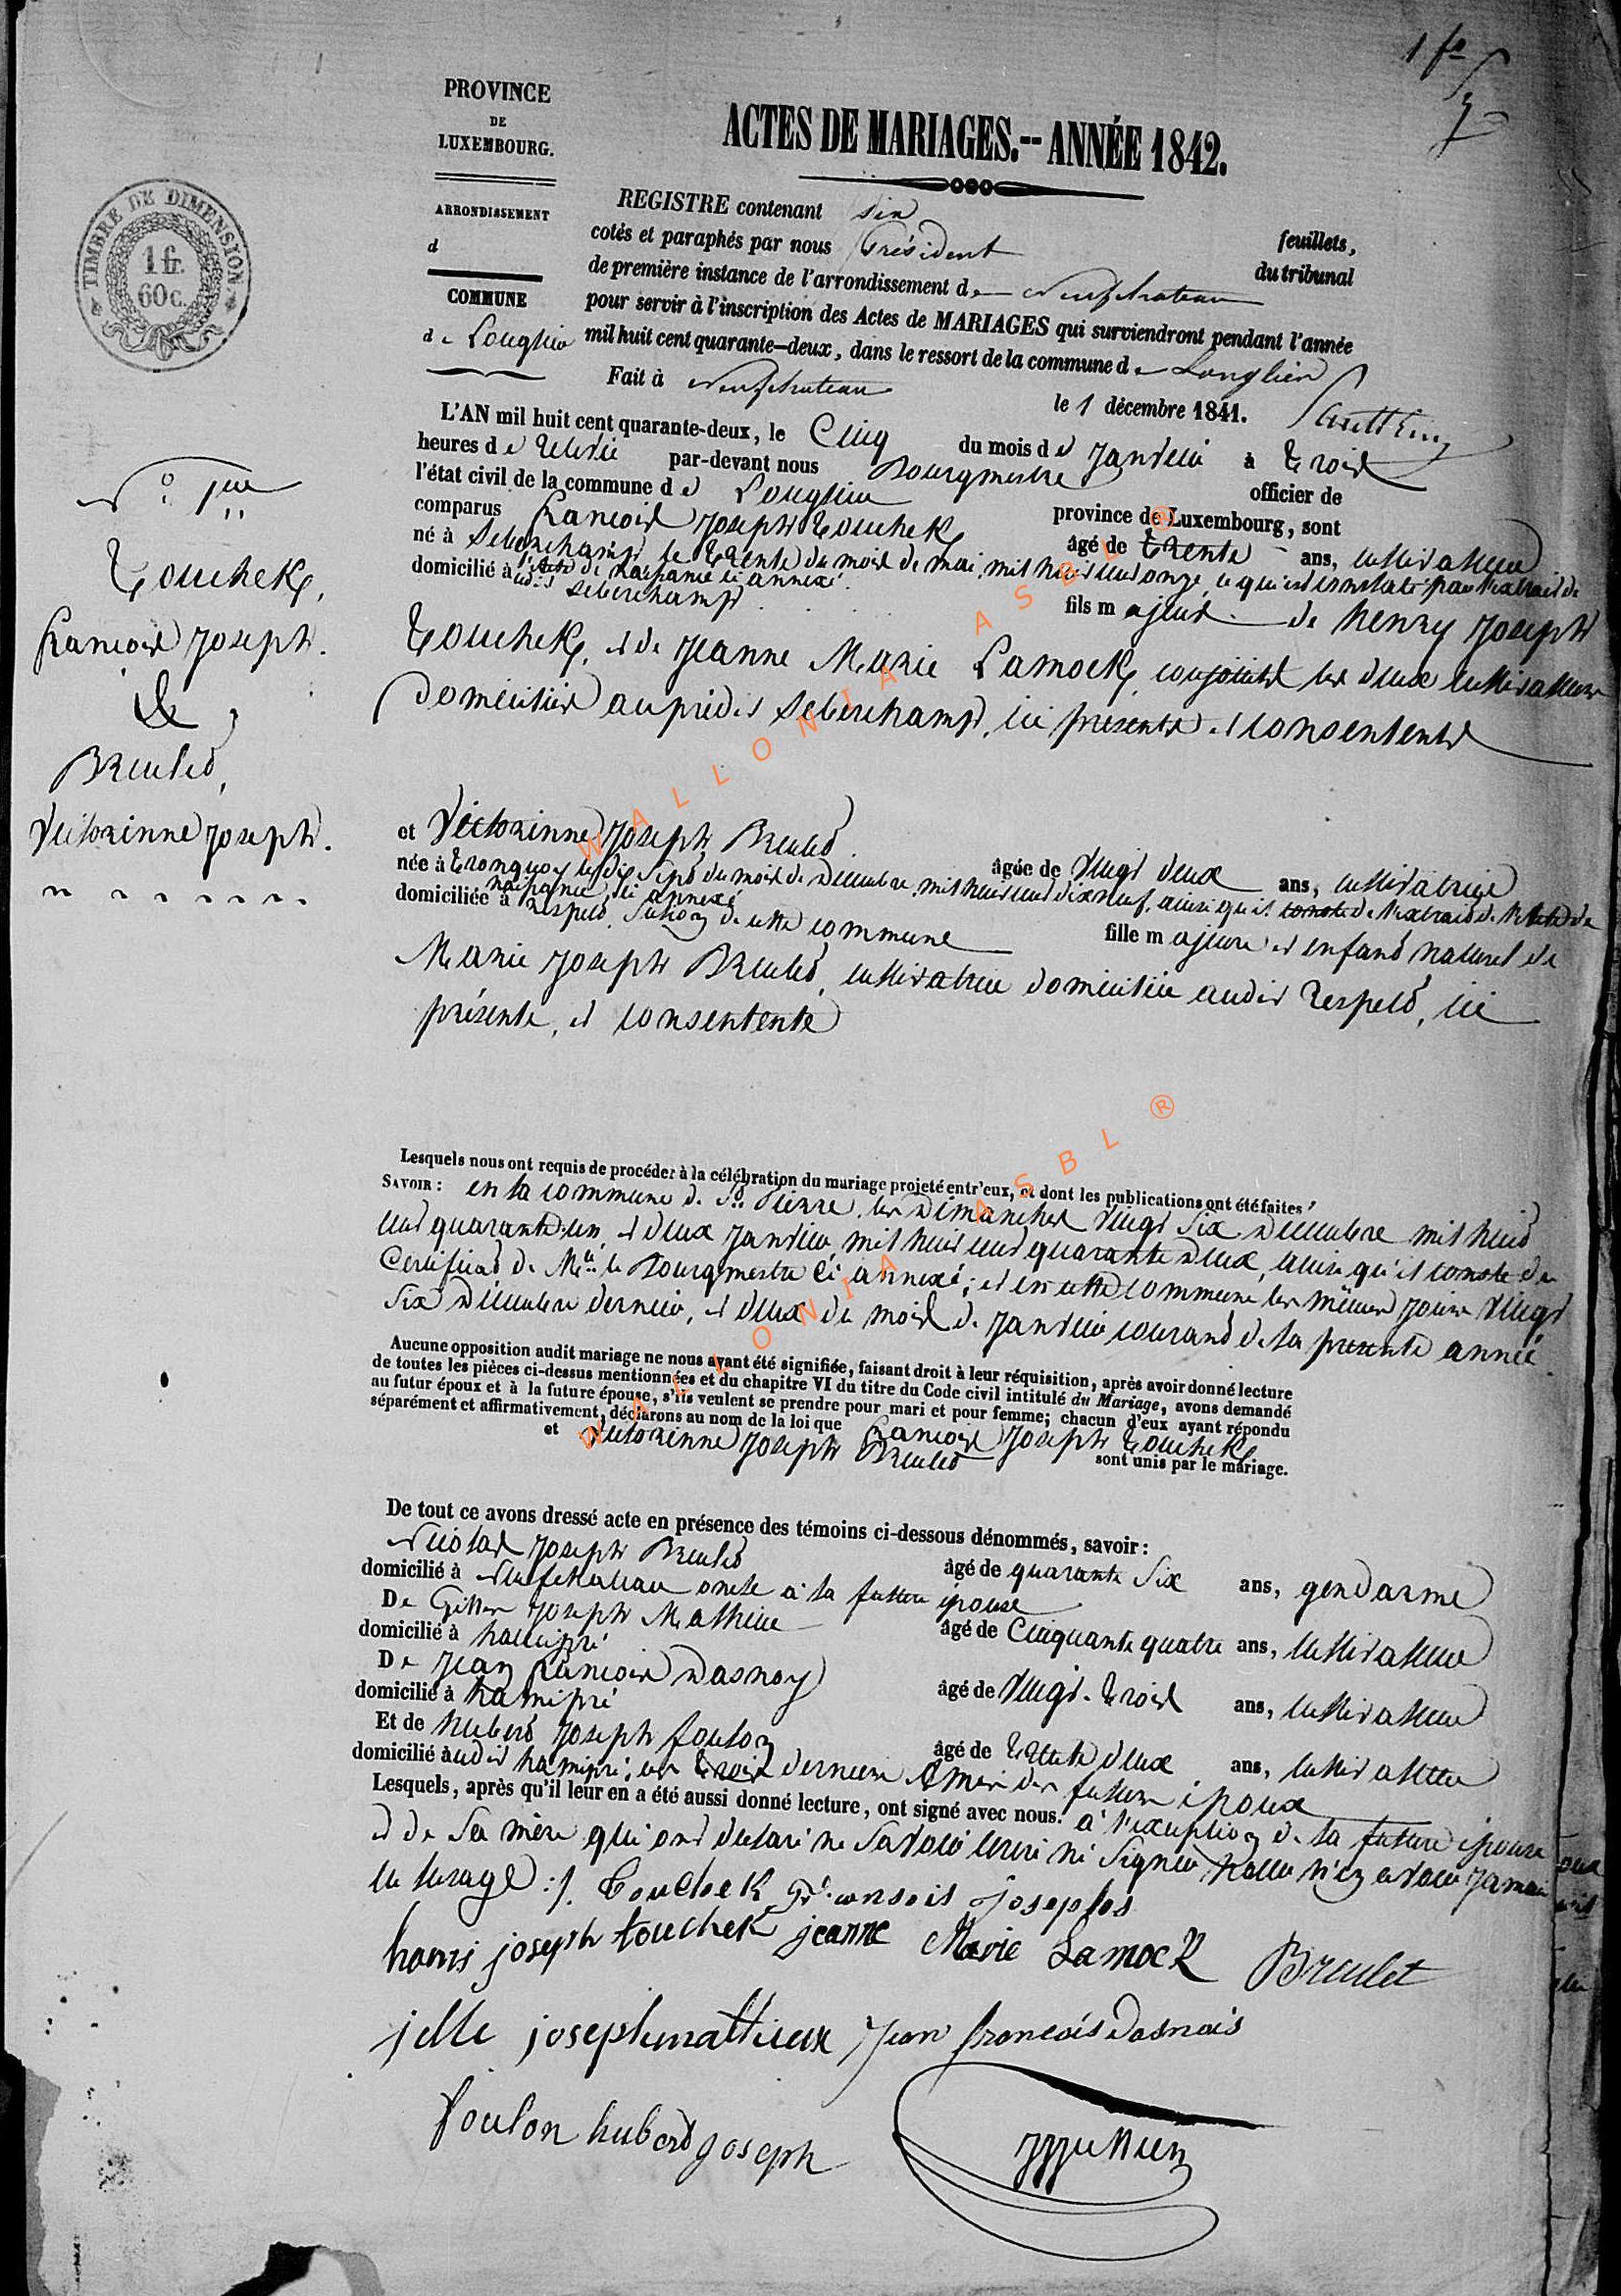 1 fo
PROVINCE
DE
LUXEMBOURG.
ARRONDISSEMENT
d
COMMUNE
de Longlier
TIMBRE DE DIMENSION
1 fr.
60 c.
ACTES DE MARIAGES.-- ANNÉE 1842.
REGISTRE contenant six feuillets,
cotés et paraphés par nous Président du tribunal
de première instance de l'arrondissement de Neufchateau
pour servir à l'inscription des Actes de MARIAGES qui surviendront pendant l'année
mil huit cent quarante-deux, dans le ressort de la commune de Longlier
Fait à Neufchateau le 1 décembre 1841.
L'AN mil huit cent quarante-deux, le Cinq du mois de Janvier à trois
heures de relevée par-devant nous Bourgmestre officier de
l'état civil de la commune de Longlier province de Luxembourg, sont
comparus françois Joseph Touchek, âgé de trente ans, cultivateur
né à Seberchamps le trente du mois de mai, mil huit cent onze, ce qui est constaté par l'extrait de
l'acte de naissance ci annexé.
domicilié audit Seberchamps fils majeur de henry Joseph
Toucheck, et de Jeanne Marie Lamock, conjoints les deux cultivateurs
Domiciliés au prédit Seberchamps, ici présents et consentents
N° 1er
Toucheck,
francois Joseph.
&
Breulet,
Victorinne Joseph.
et Victorinne Joseph Breulet âgée de vingt deux ans, cultivatrice
née à tronquoy le dix sept du mois de Décembre, mil huit cent dix neuf, ainsi qu'il conste de l'extrait de l'acte de
naissance, ici annexé
domiciliée à respelt, Section de cette commune fille majeure et enfant naturel de
Marie Joseph Breulet, cultivatrice domiciliée audit respelt, ici
présente, et consentente
Lesquels nous ont requis de procéder à la célébration du mariage projeté entr'eux, et dont les publications ont été faites,
SAVOIR : en la commune de St Pierre, les Dimanches vingt Six Décembre mil huit
cent quarante un, et deux Janvier, mil huit cent quarante Deux, ainsi qu'il conste du
Certificat de Mr le Bourgmestre ci annexé; et en cette commune les mêmes jours vingt
Six Décembre dernier, et deux du mois de Janvier courant de la présente année
Aucune opposition audit mariage ne nous ayant été signifiée, faisant droit à leur réquisition, après avoir donné lecture
de toutes les pièces ci-dessus mentionnées et du chapitre VI du titre du Code civil intitulé du Mariage, avons demandé
au futur époux et à la future épouse, s'ils veulent se prendre pour mari et pour femme; chacun d'eux ayant répondu
séparément et affirmativement, déclarons au nom de la loi que francois Joseph Toucheck
et Victorinne Joseph Breulet sont unis par le mariage.
De tout ce avons dressé acte en présence des témoins ci-dessous dénommés, savoir :
Nicolas Joseph Breulet âgé de quarante Six ans, gendarme
domicilié à Neufchateau oncle à la future épouse
De Gilles Joseph Mathieu âgé de Cinquante quatre ans, cultivateur
domicilié à hamipré
De Jean francois Dasnoy âgé de vingt-trois ans, cultivateur
domicilié à hamipré
Et de hubert Joseph foulon âgé de trente deux ans, cultivateur
domicilié audit hamipré; les trois derniers Amis des futurs époux
Lesquels, après qu'il leur en a été aussi donné lecture, ont signé avec nous. à l'exception de la future épouse
et de Sa mère qui ont déclaré ne Savoir écrire ni Signer pour n'en avoir jamais
eu l'usage :/.
Touchek françois Josephs
henri joseph touchek jeanne Marie Lamock Breulet
jille joseph mathieux Jean françois Dasnois
foulon hubert joseph
WALLONIA ASBL ®
WALLONIA ASBL ®